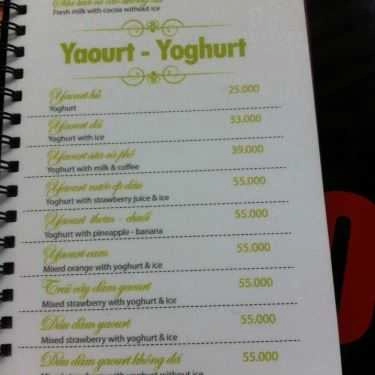 Fresh milk with cocoa without ice
Yaourt - Yoghurt
Yaourt hũ 25.000
Yoghurt
Yaourt đá 33.000
Yoghurt with ice
Yaourt sữa cà phê 39.000
Yoghurt with milk & coffee
Yaourt nước ép dâu 55.000
Yoghurt with strawberry juice & ice
Yaourt thơm - chuối 55.000
Yoghurt with pineapple - banana
Yaourt cam 55.000
Mixed orange with yoghurt & ice
Trái cây dầm yaourt 55.000
Mixed strawberry with yoghurt & ice
Dâu dầm yaourt 55.000
Mixed strawberry with yoghurt & ice
Dâu dầm yaourt không đá 55.000